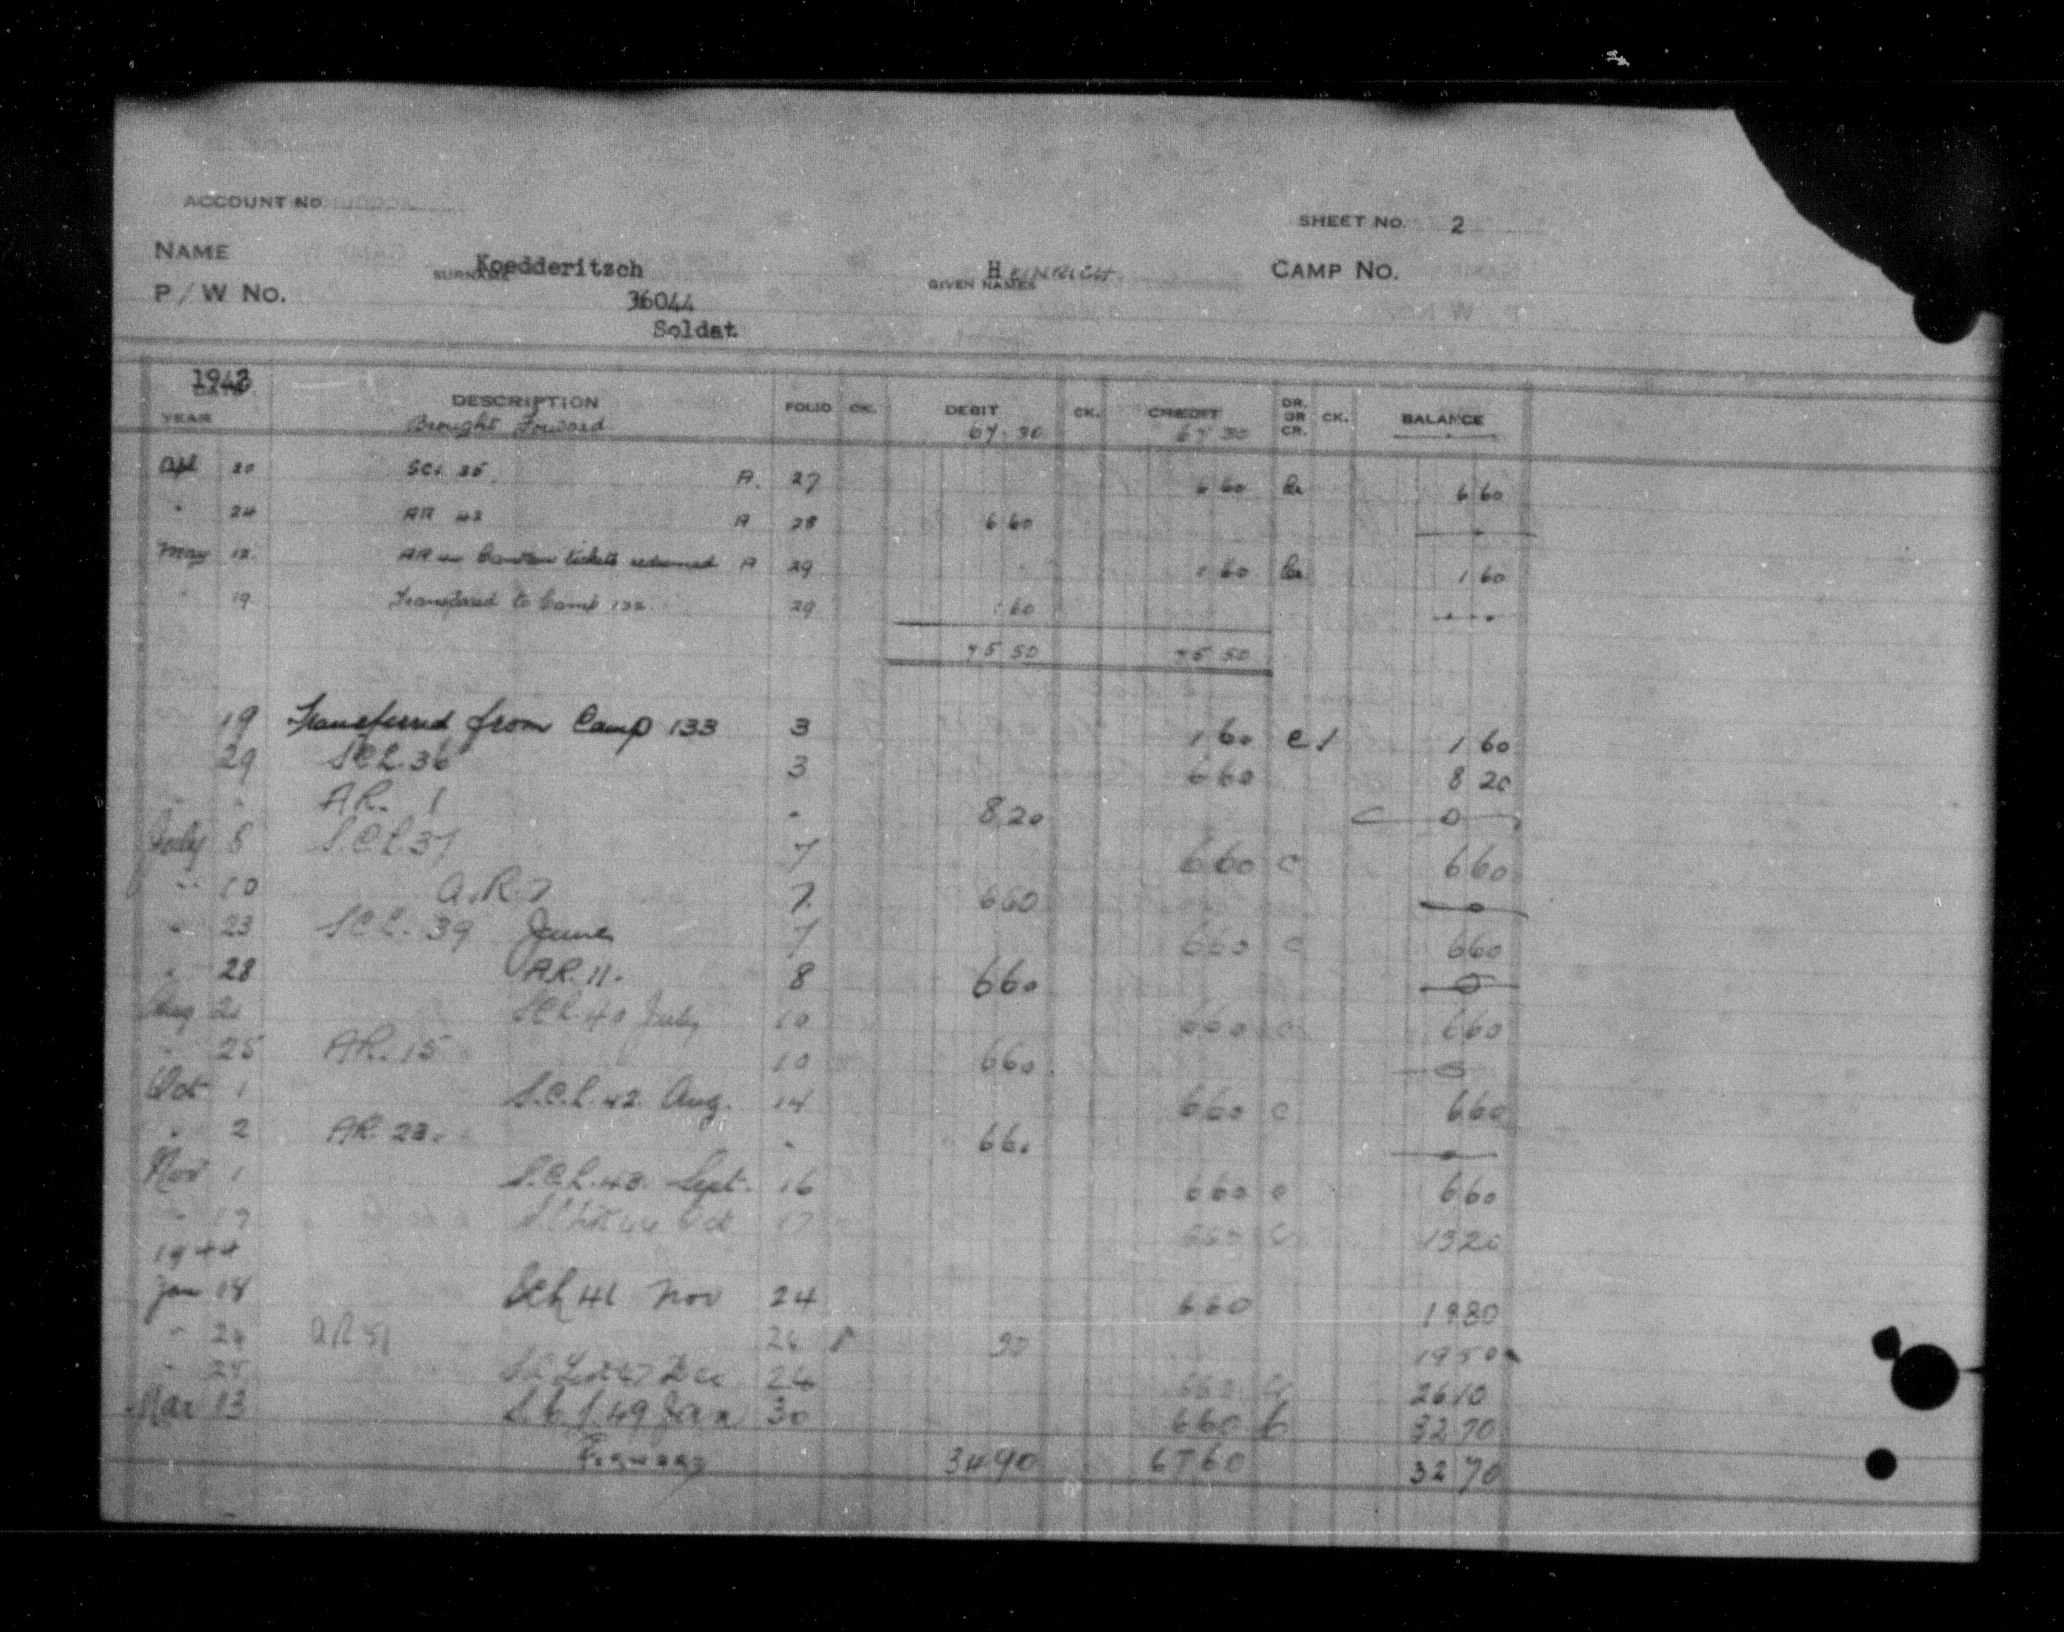 ACCOUNT NO
SHEET NO. 2
NAME Koedderitzch SURNAME HEINRICH GIVEN NAMES CAMP NO.
P/W No. 36044
Soldat
1943
DATE YEAR DESCRIPTION FOLIO CK. DEBIT CK. CREDIT DR. OR CR. CK. BALANCE
Brought Forward 67 30 67 30
Apl 20 SCL 35. A. 27 6 60 Cr 6 60
" 24 AR 42 A 28 6 60
May 12 AR Canteen tickets redeemed A 29 1 60 Cr 1 60
" 19 Transferred to Camp 132 29 1 60
75 50 75 50
19 Transferred from Camp 133 3 1 60 c 1 60
29 SCL 36 3 6 60 8 20
" " AR. 1 " 8 20 0
July 5 S.C.L 37 7 6 60 c 6 60
" 10 A.R 7 7 6 60 0
" 23 SCL. 39 June 7 6 60 c 6 60
" 28 AR. 11. 8 6 60 0
Aug 21 SCL 40 July 10 6 60 c 6 60
" 25 AR. 15 10 6 60 0
Oct 1 S.C.L. 42 Aug. 14 6 60 c 6 60
" 2 AR 23. " 6 60
Nov 1 S.C.L. 43 Sept. 16 6 60 c 6 60
" 17 Oct 17 6 60 c 13 20
1944
Jan 18 SCL 46 Nov 24 6 60 19 80
" 24 AR 51 26 30 19 50
" 25 SCL 47 Dec 26 6 60 26 10
Mar 13 S.C.L 49 Jan 30 6 60 C 32 70
Forward 34 90 67 60 32 70